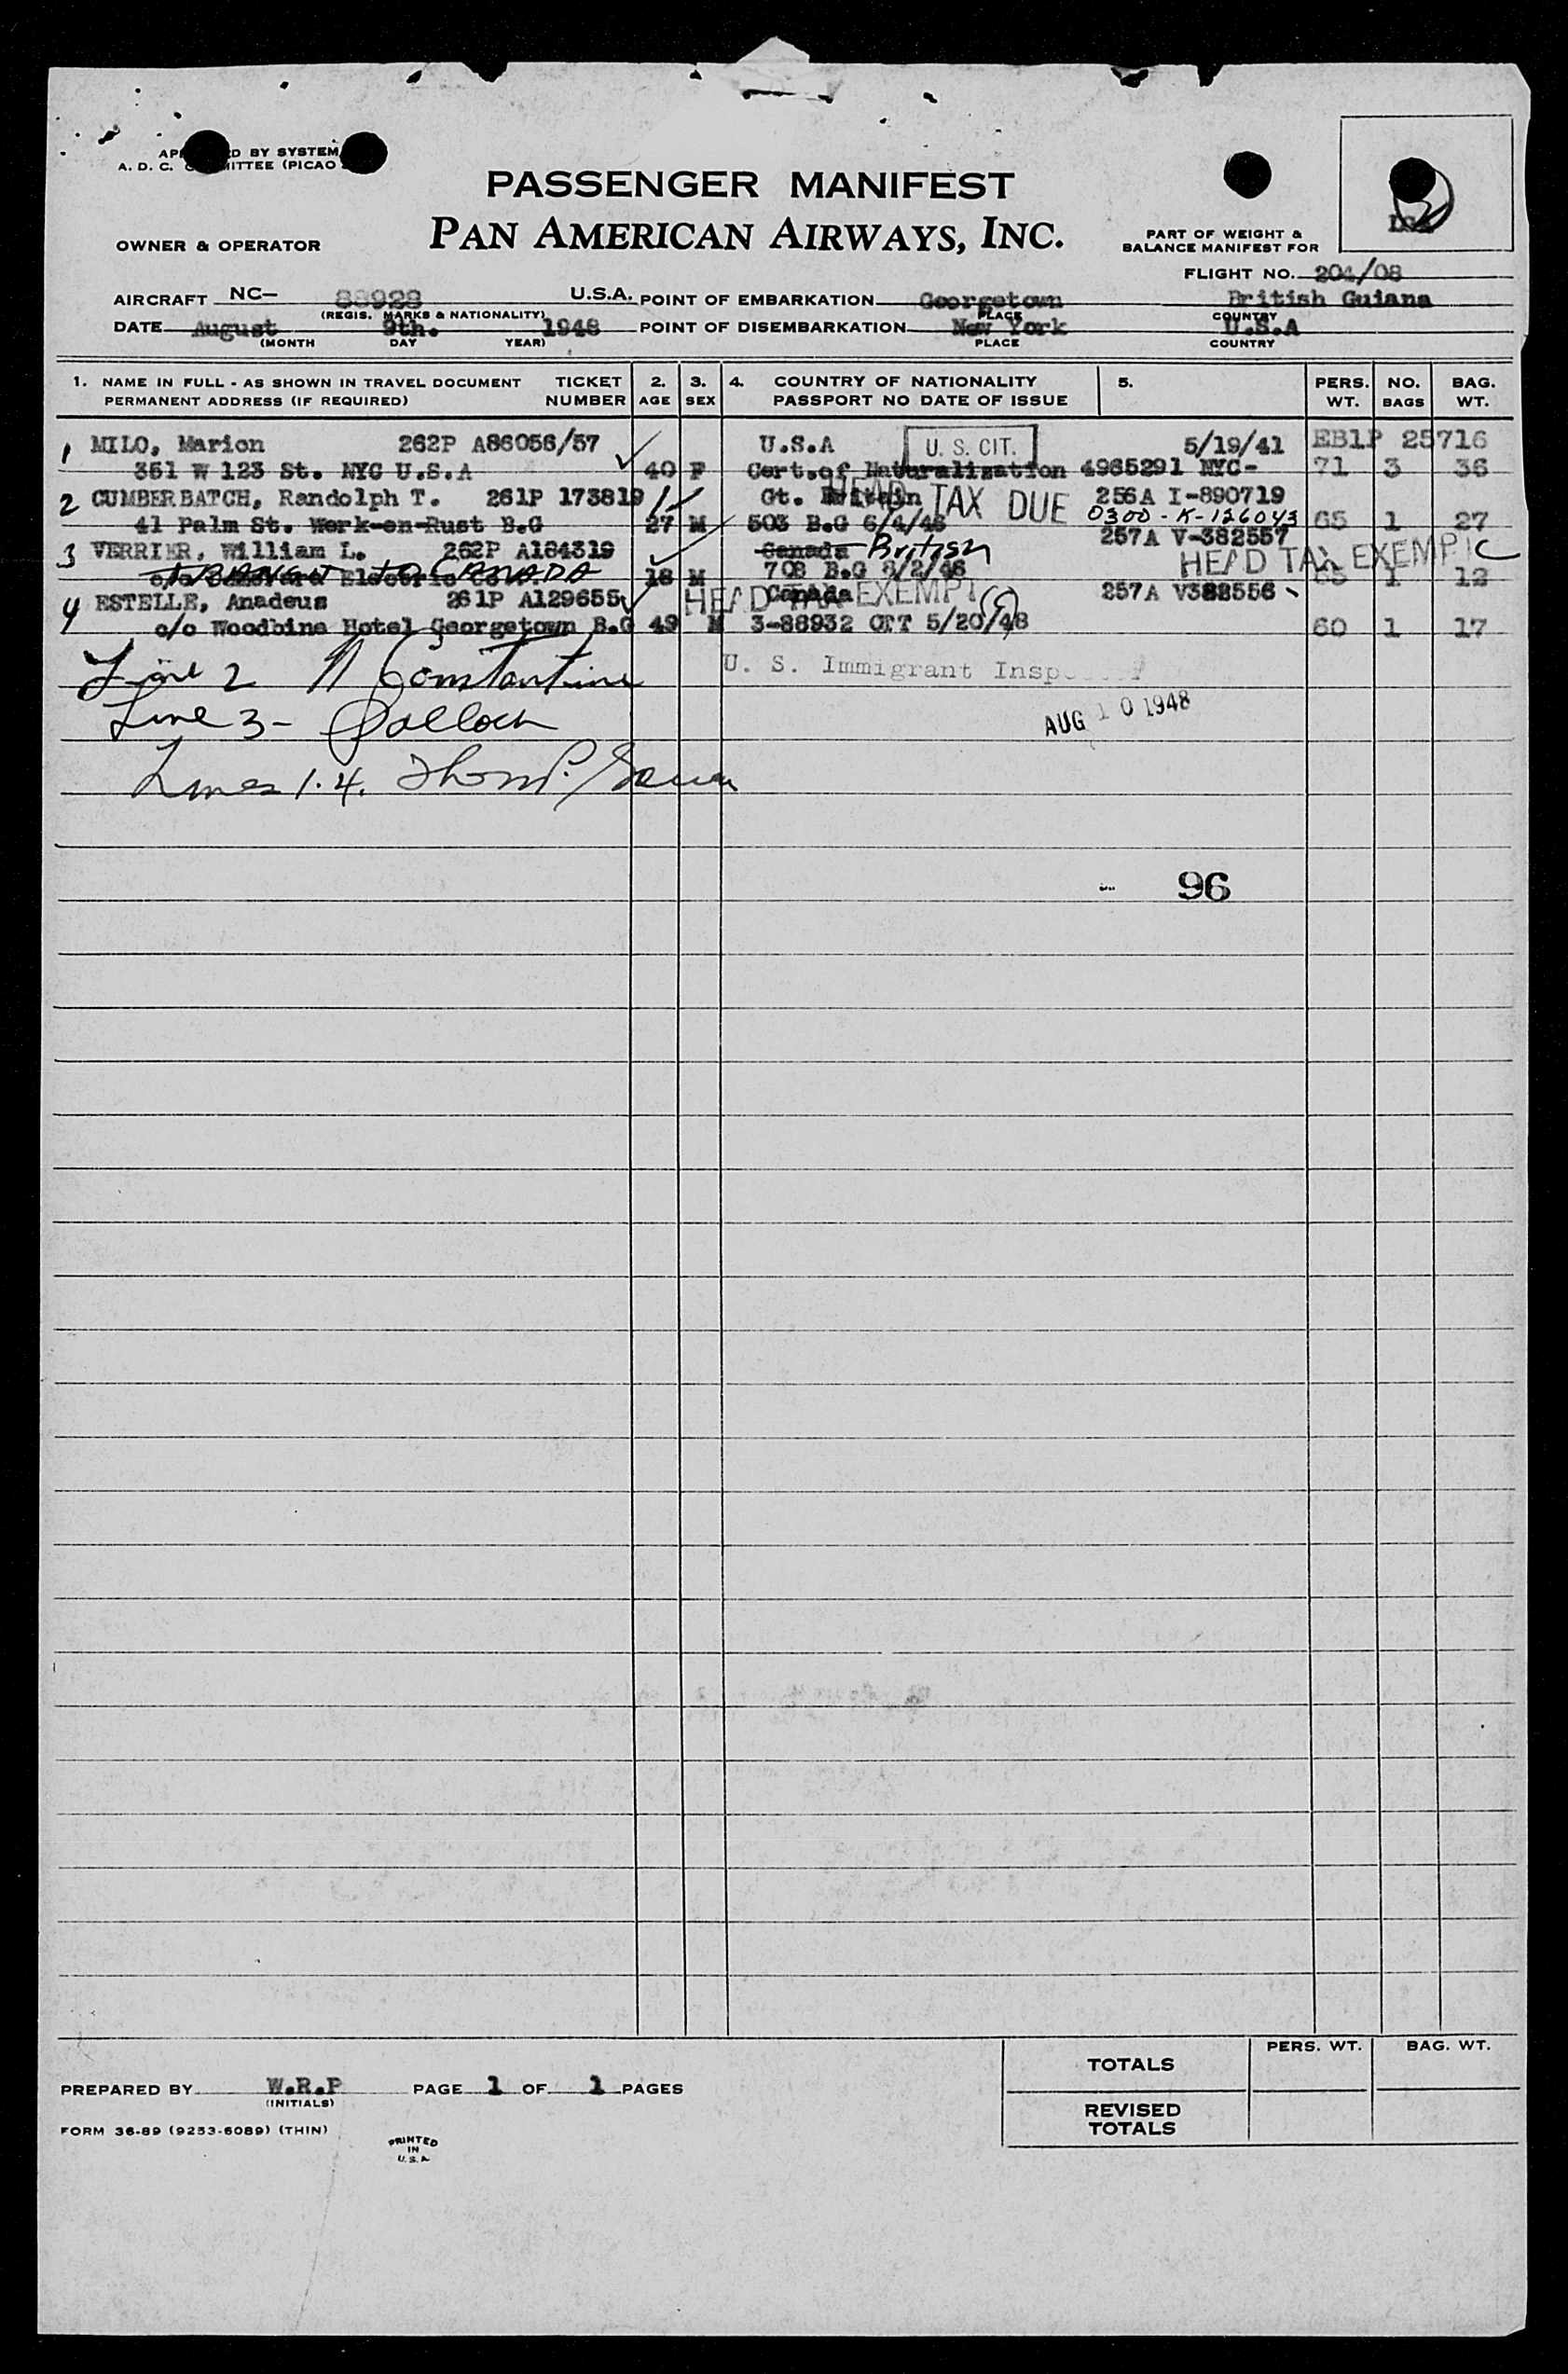 BY SYSTEM
A. D. C. (PICAO
PASSENGER MANIFEST
PAN AMERICAN AIRWAYS, INC.
OWNER & OPERATOR
PART OF WEIGHT &
BALANCE MANIFEST FOR
FLIGHT NO. 204/08
AIRCRAFT NC- 88928 U.S.A. POINT OF EMBARKATION Georgetown British Guiana
(REGIS. MARKS & NATIONALITY) PLACE COUNTRY
DATE August 9th. 1948 POINT OF DISEMBARKATION New York U.S.A
(MONTH DAY YEAR) PLACE COUNTRY
1. NAME IN FULL - AS SHOWN IN TRAVEL DOCUMENT TICKET 2. 3. 4. COUNTRY OF NATIONALITY 5. PERS. NO. BAG.
PERMANENT ADDRESS (IF REQUIRED) NUMBER AGE SEX PASSPORT NO DATE OF ISSUE WT. BAGS WT.
1 MILO, Marion 262P A86056/57 U.S.A U. S. CIT. 5/19/41 EB1P 25716
351 W 123 St. NYC U.S.A 40 F Cert.of Naturalization 4965291 NYC- 71 3 36
2 CUMBERBATCH, Randolph T. 261P 173819 Gt. Britain HEAD TAX DUE 256A I-890719
41 Palm St. Werk-en-Rust B.G 27 M 503 B.G 6/4/48 0300-K-126043 65 1 27
3 VERRIER, William L. 262P A184319 Canada British 257A V-382557
TRANSIT TO CANADA Electric 18 M 708 B.G HEAD TAX EXEMPT C 1 12
4 ESTELLE, Anadeus 261P A129655 HEAD TAX EXEMPT Canada 257A V382556
c/o Woodbine Hotel Georgetown B.G 49 M 3-88932 OTT 5/20/48 60 1 17
Line 2 N Constantine U. S. Immigrant
Line 3- AUG 10 1948
Lines 1.4.
96
PREPARED BY W.R.P PAGE 1 OF 1 PAGES
(INITIALS)
FORM 36-89 (9253-6089) (THIN)
PRINTED
IN
U.S.A.
PERS. WT. BAG. WT.
TOTALS
REVISED
TOTALS